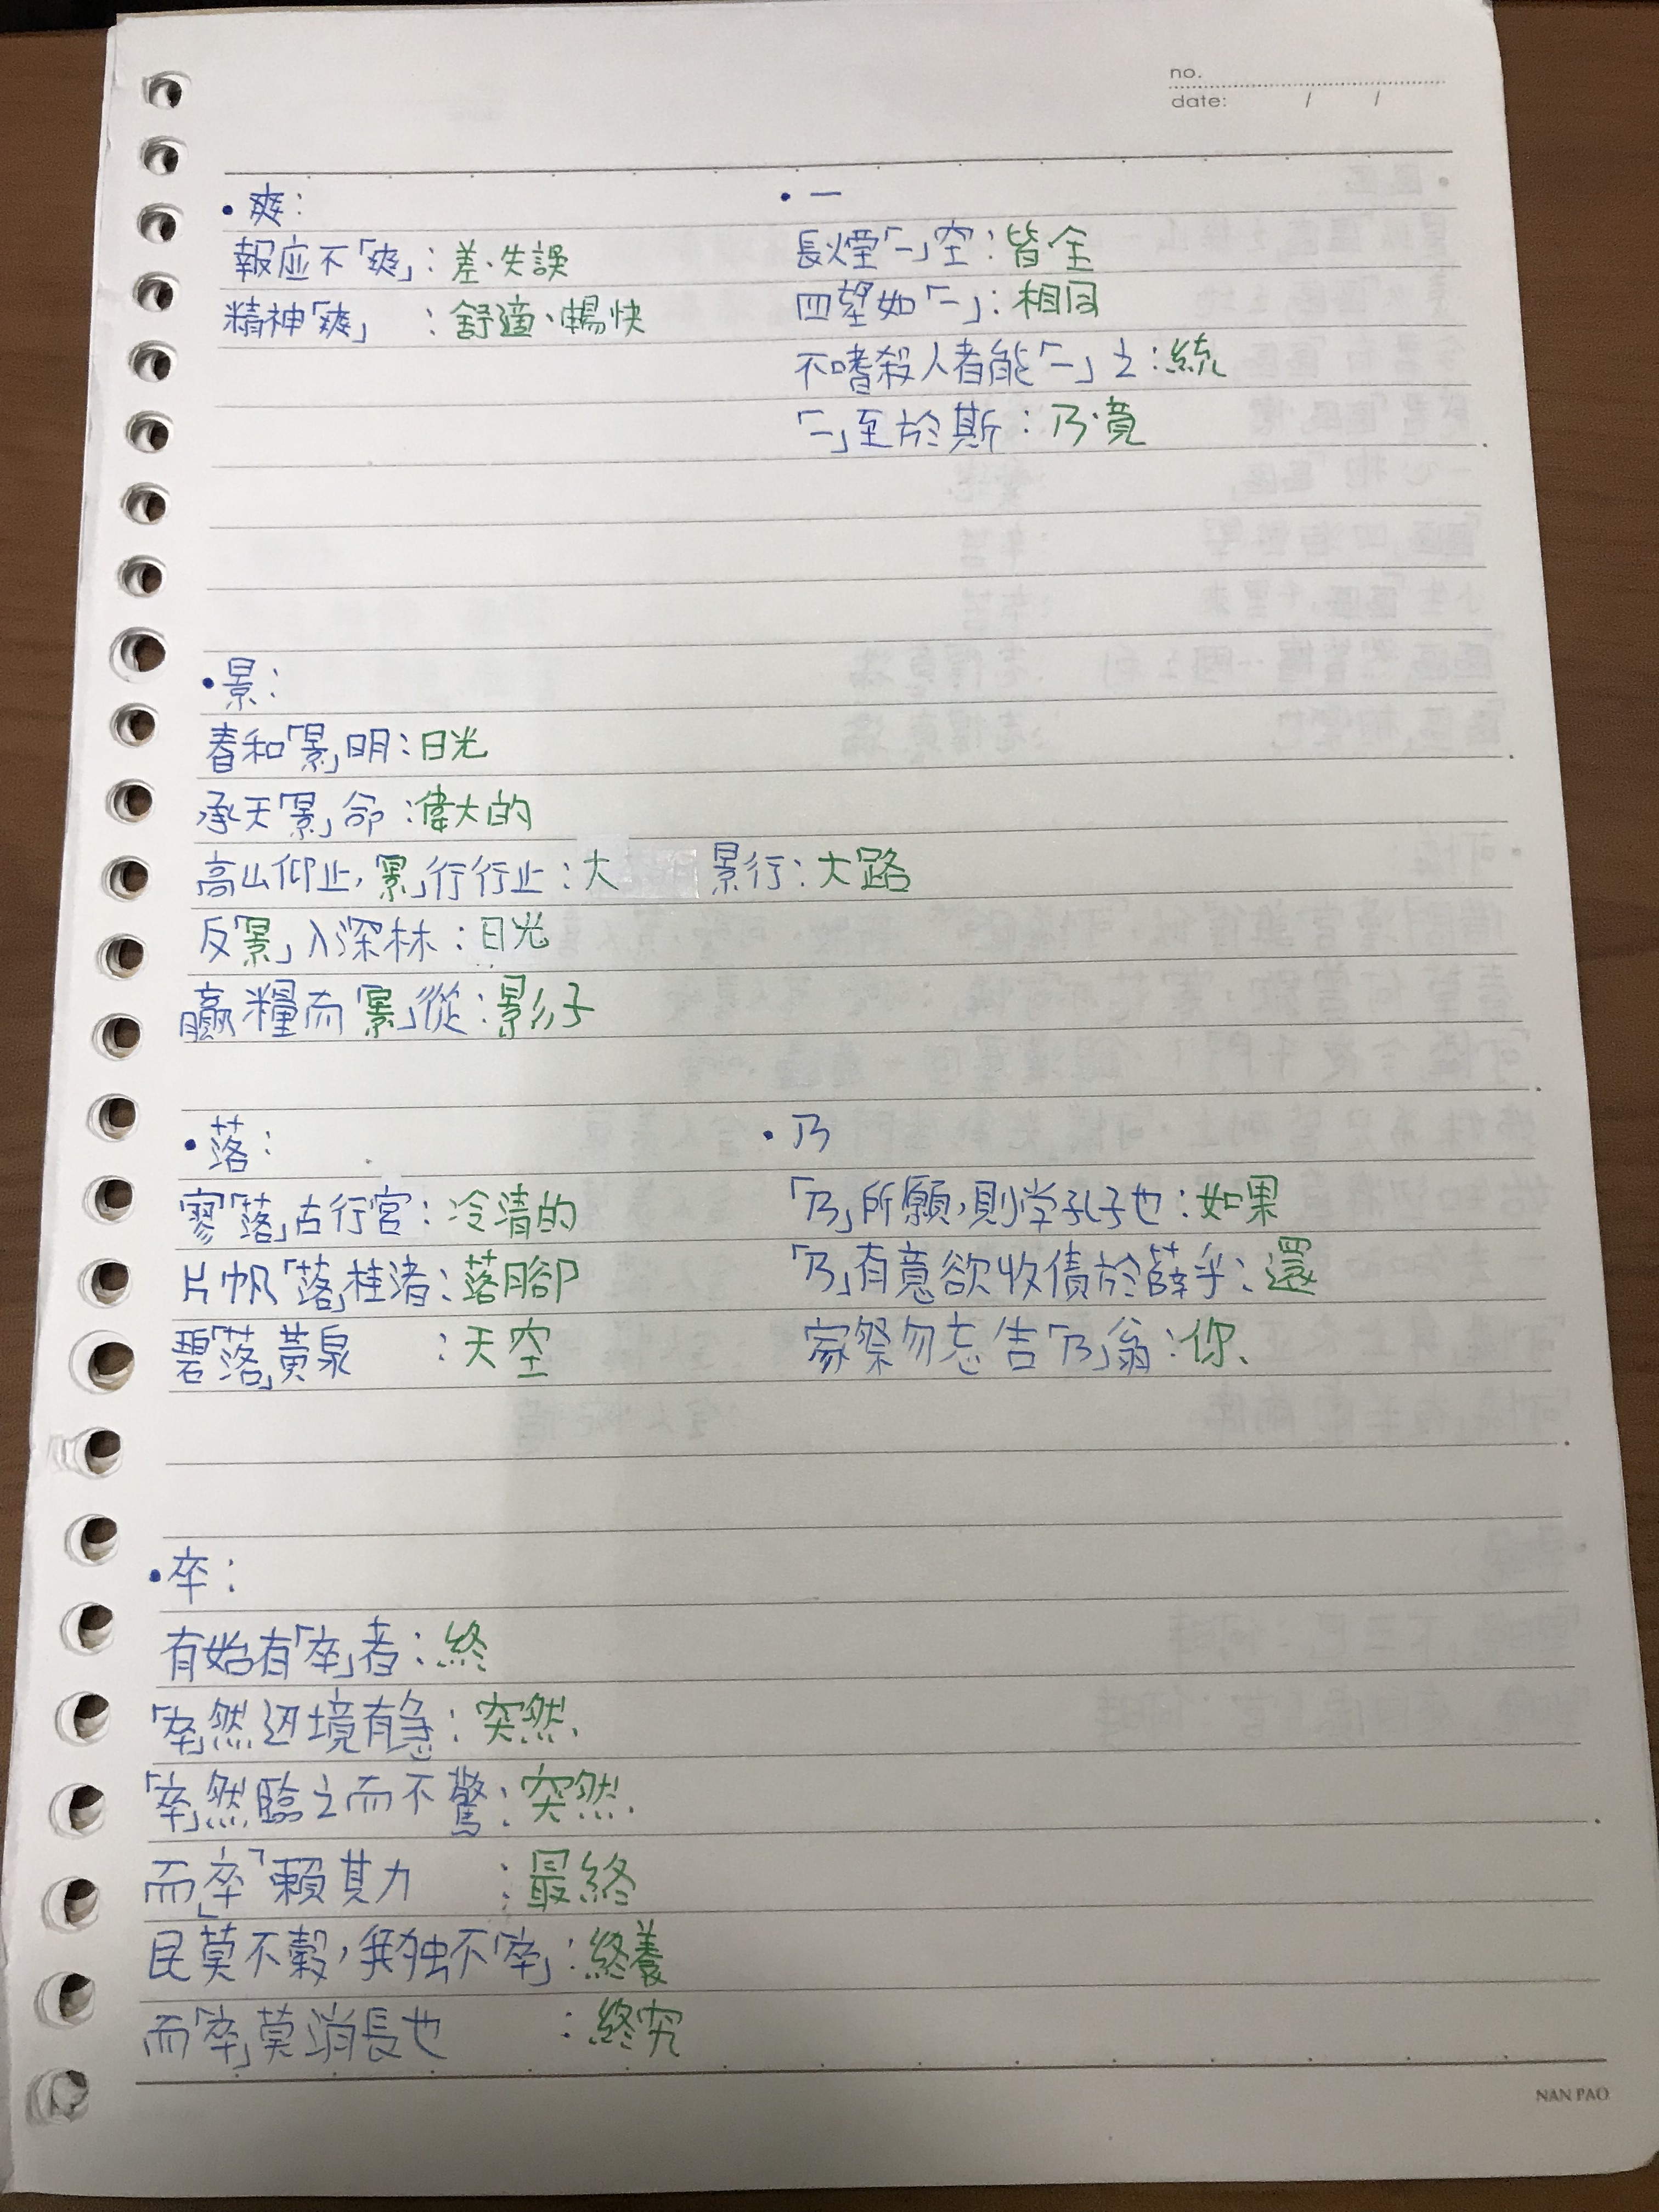 no.
date: / /
•爽：
報应不「爽」：差、失誤
精神「爽」：舒適、暢快
•一
長煙「一」空：皆、全
四望如「一」：相同
不嗜殺人者能「一」之：統
「一」至於斯：乃、竟
•景：
春和「景」明：日光
承天「景」命：偉大的
高山仰止，景」行行止：大 景行：大路
反景」入深林：日光
贏糧而「景」從：影子
•落：
寥「落」古行宮：冷清的
片帆「落」桂渚：落腳
碧「落」黃泉：天空
•乃
「乃」所願，則学孔子也：如果
「乃」有意欲收債於薛乎：還
家祭勿忘告「乃」翁：你、
•卒：
有始有「卒」者：終
「卒」然边境有急：突然、
「卒」然臨之而不驚：突然、
而「卒」賴其力：最終
民莫不穀，我独不「卒」：終養
而「卒」莫消長也：終究
NAN PAO